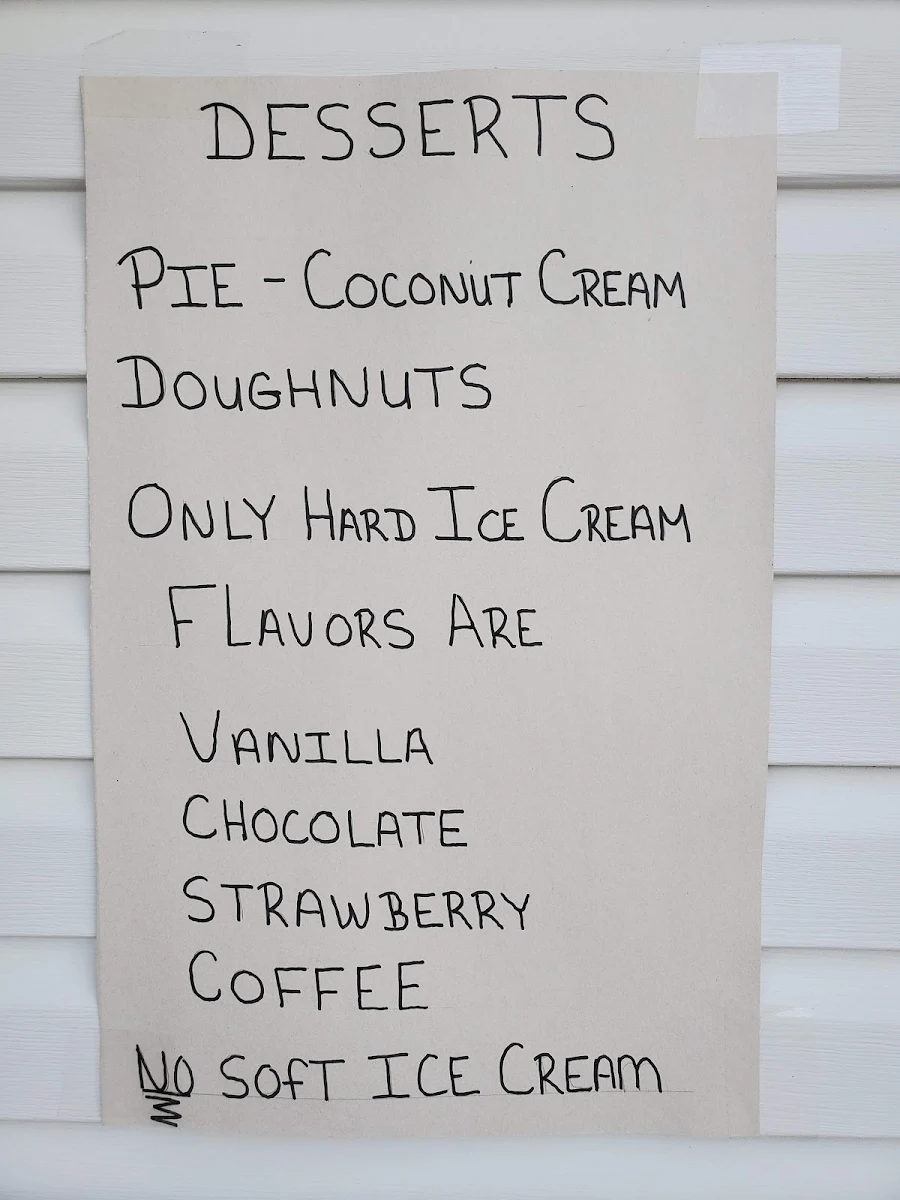 DESSERTS
PIE - COCONUT CREAM
DOUGHNUTS
ONLY HARD ICE CREAM
FLAVORS ARE
VANILLA
CHOCOLATE
STRAWBERRY
COFFEE
NO SOFT ICE CREAM